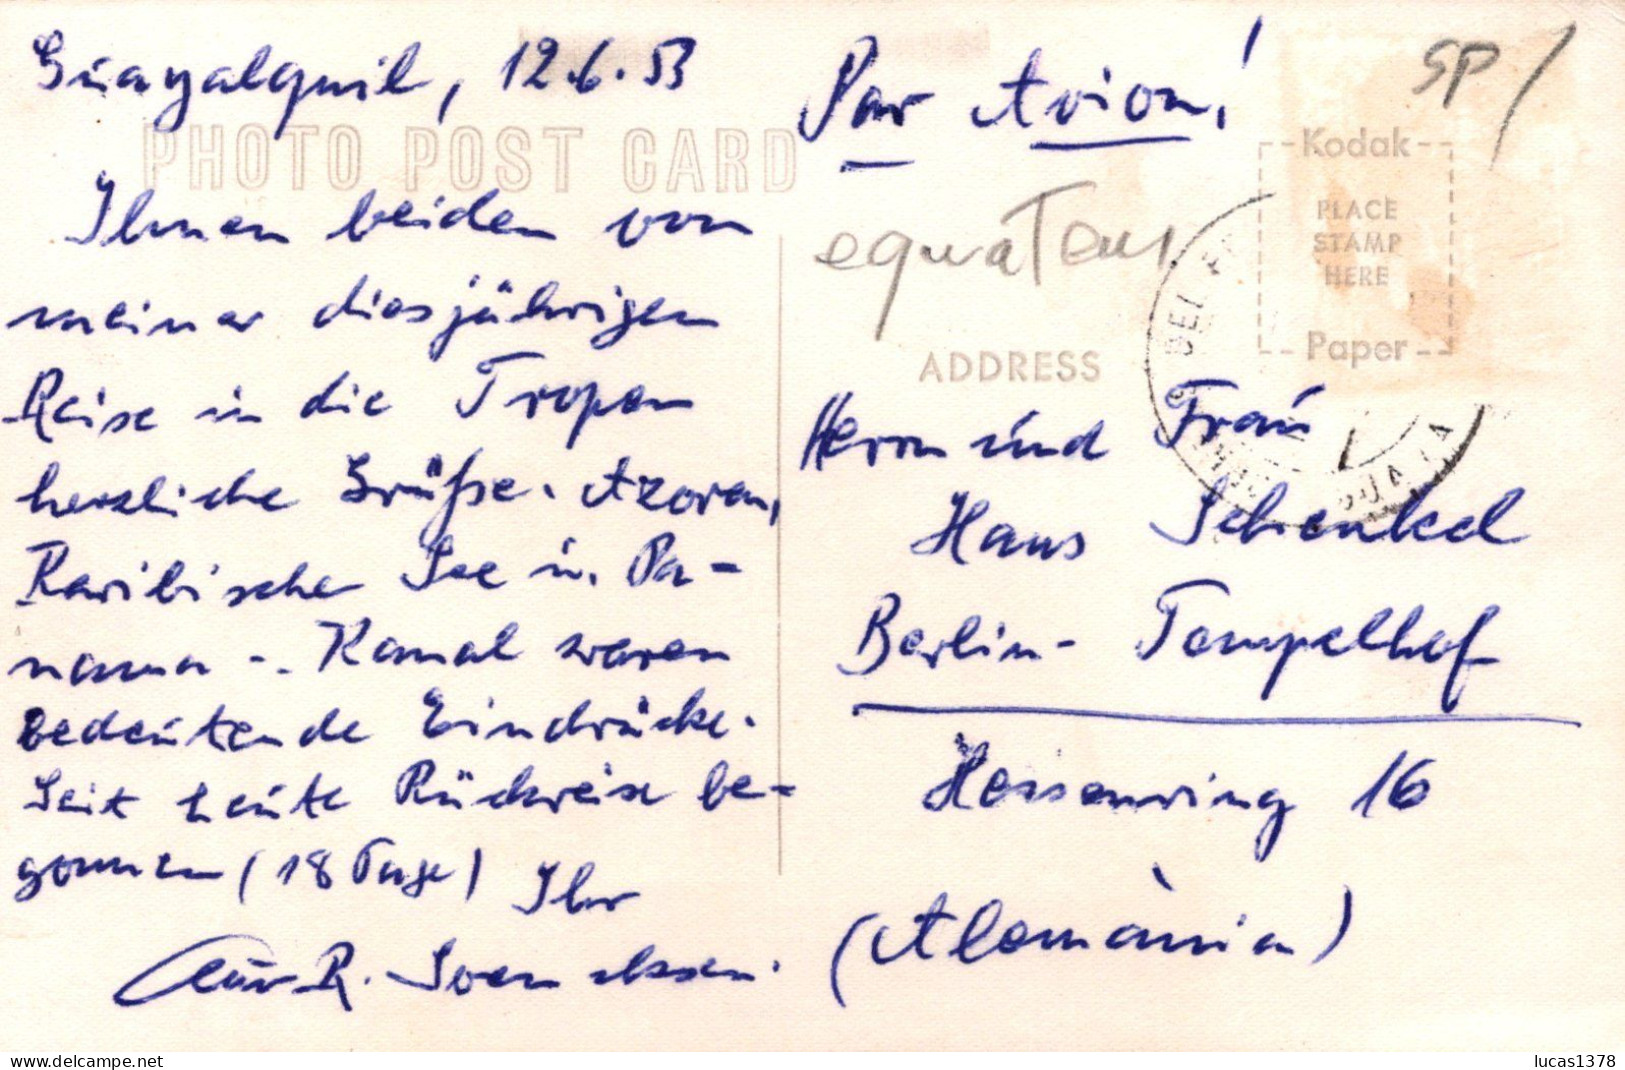 Guayalquil, 12.6.53
PHOTO POST CARD
Ihnen beiden von
meiner diesjährigen
Reise in die Tropen
herzliche Grüße. Azoren,
Karibische See u. Pa-
nama - Kanal waren
bedeutende Eindrücke.
Seit heute Rückreise be-
gonnen (18 Tage) Ihr
R.
Par Avion!
SP
equateur
Kodak
PLACE
STAMP
HERE
Paper
ADDRESS
Herrn und Frau
Hans Schenkel
Berlin- Tempelhof
Hessenring 16
(Alemània)
delcampe.net
lucas1378